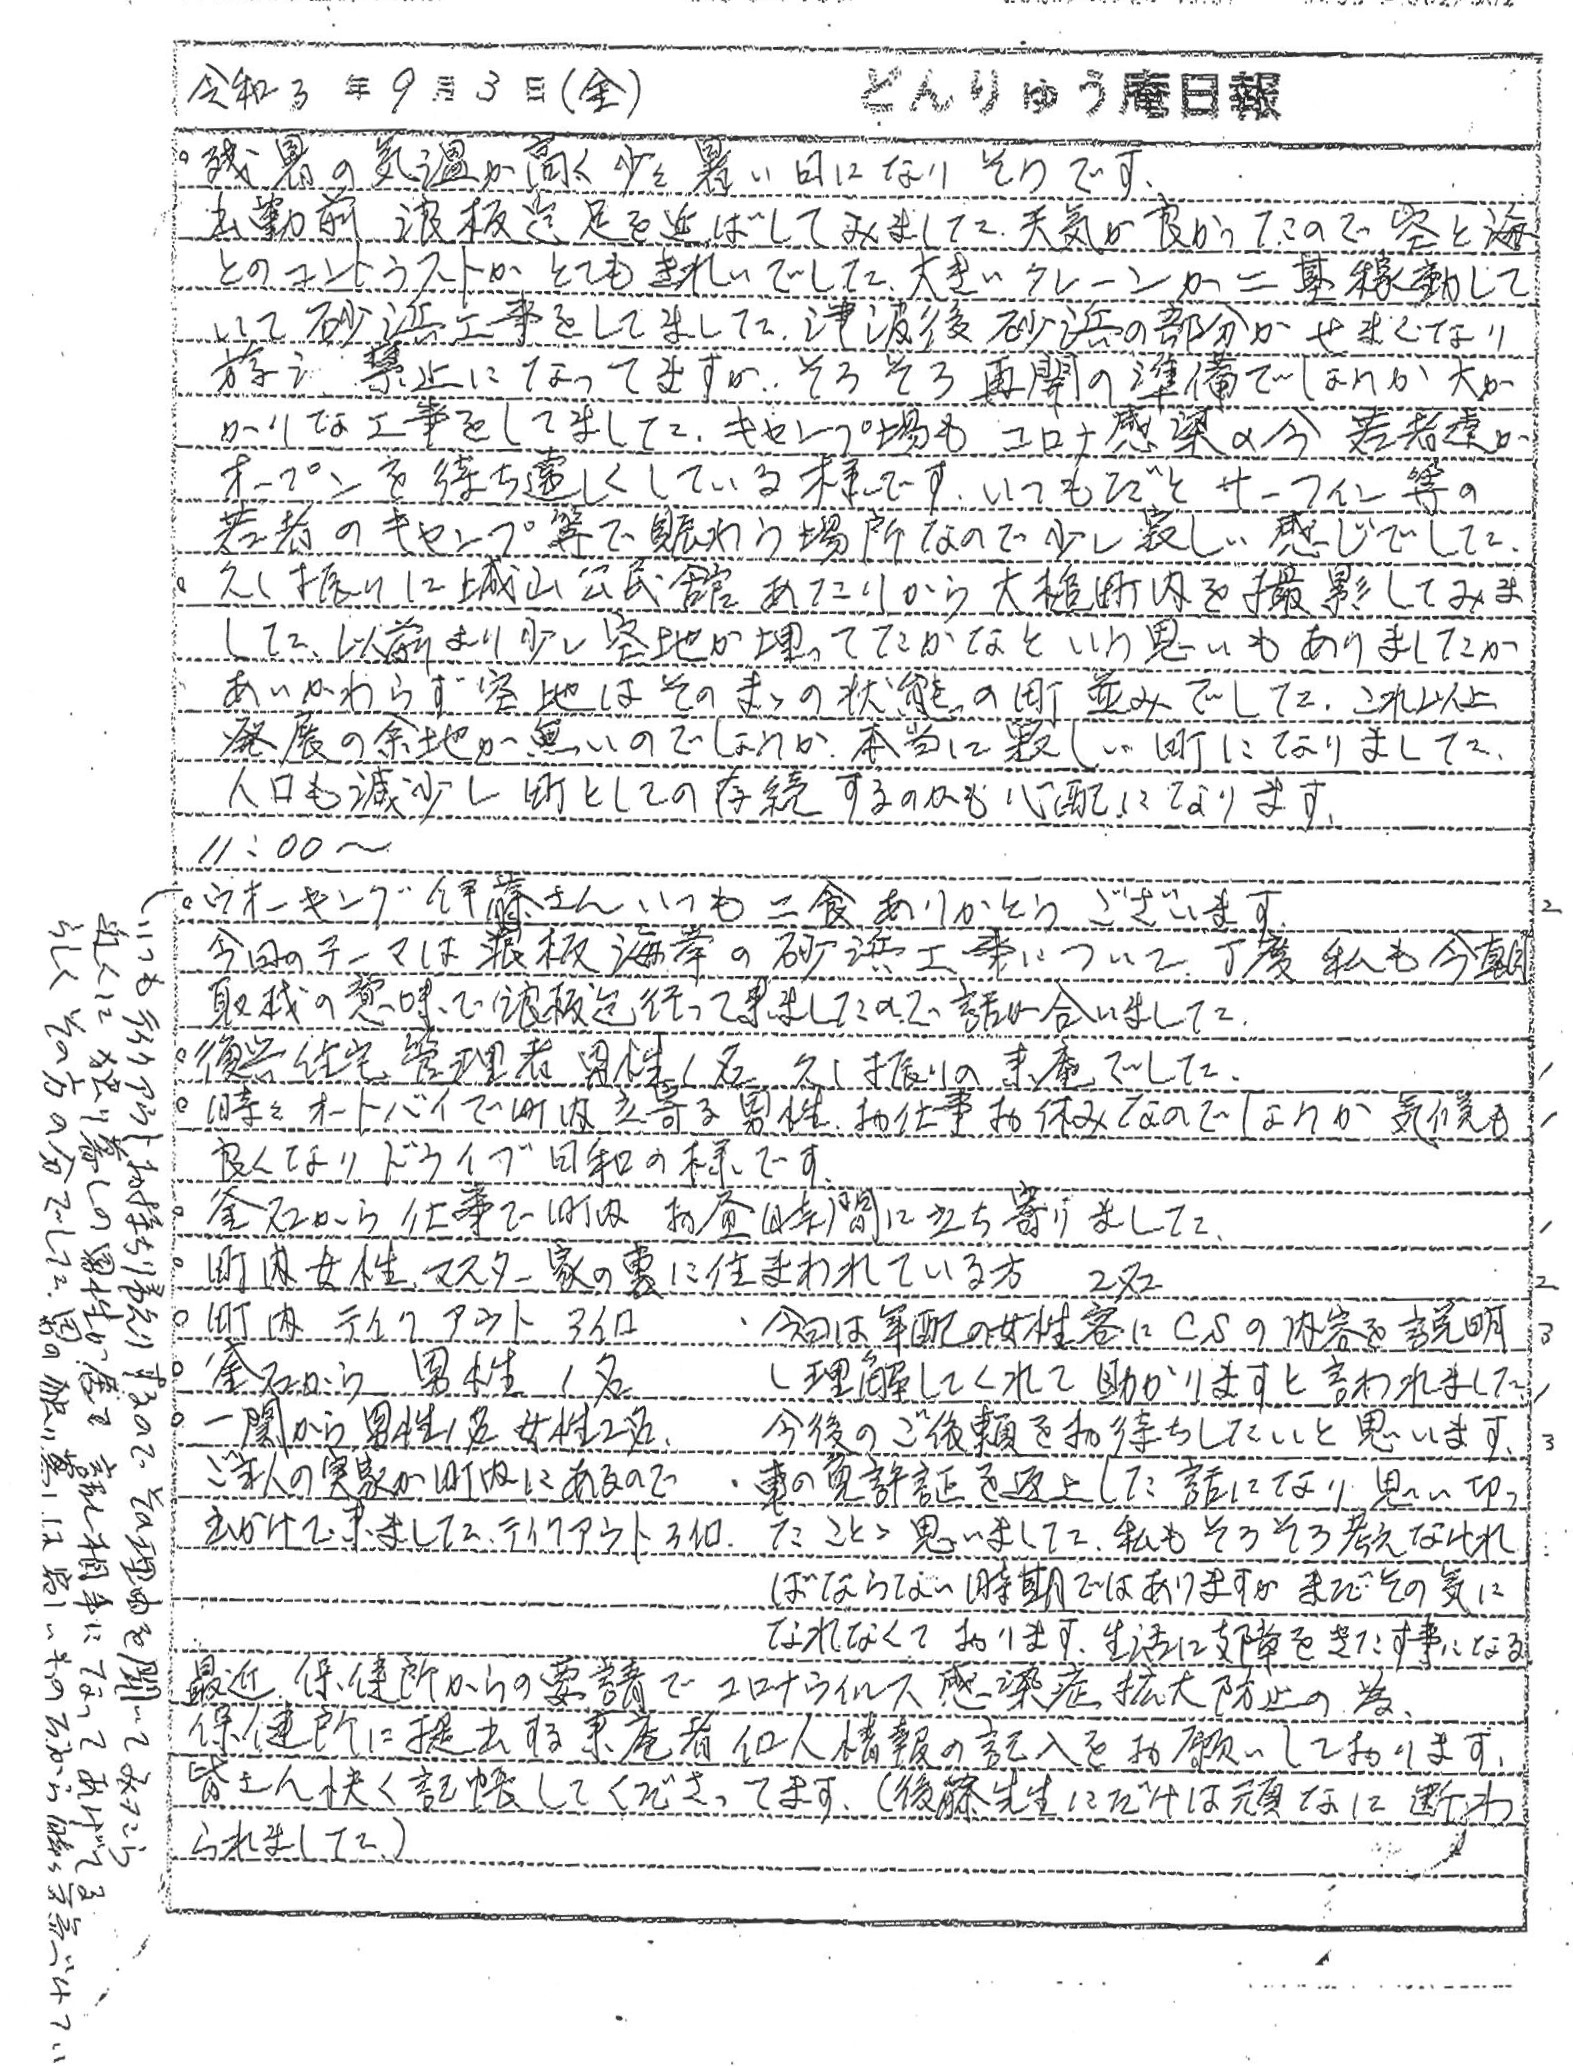 令和3年9月3日(金)
どんりゅう庵日報
。残暑の気温が高く少々暑い日になりそうです、
出勤前 浪板迄足を延ばしてみました、天気が良かったので空と海
とのコントラストがとてもきれいでした、大きいクレーンが二基稼動して
いて砂浜工事をしてました、津波後砂浜の部分がせまくなり
游泳禁止になってますが、そろそろ再開の準備でしょうか大が
かりな工事をしてました、キャンプ場もコロナ感染の今若者達が
オープンを待ち遠しくしている様です、いつもだとサーフィン等の
若者のキャンプ等で賑わう場所なので少し寂しい感じでした、
。久し振りに城山公民館あたりから大槌町内を撮影してみま
した、以前より少し空地が埋ってたかなという思いもありましたが
あいかわらず空地はそのまゝの状態の町並みでした、これ以上
発展の余地が無いのでしょうか、本当に寂しい町になりました、
人口も減少し町としての存続するのかも心配になります、
11:00〜
。ウオーキング伊藤さんいつも二食ありがとうございます、 2
今回のテーマは浪板海岸の砂浜工事について、丁度私も今朝
取材の意味で浪板迄行って来ましたので話が合いました、
。復興住宅管理者 男性1名 久し振りの来庵でした、 1
。時々オートバイで町内立寄る男性、お仕事お休みなのでしょうか気候も 1
良くなりドライブ日和の様です、
。釜石から仕事で町内 お昼時間に立ち寄りました、 1
。町内女性、マスター家の裏に住まわれている方 2名 2
。町内 テイクアウト 3個 3
。釜石から 男性 1名 1
。一関から男性1名 女性2名、 3
ご主人の実家が町内にあるので
出かけて来ました、テイクアウト3個、
・今回は年配の女性客にCSの内容を説明
し理解してくれて助かりますと言われました、
今後のご依頼をお待ちしたいと思います、
・車の免許証を返上した話になり思い切っ
たことゝ思いました、私もそろそろ考えなけれ
ばならない時期ではありますがまだその気に
なれなくております、生活に支障をきたす事になる
最近保健所からの要請でコロナウイルス感染症拡大防止の為、
保健所に提出する来庵者個人情報の記入をお願いしております、
皆さん快く記帳してくださってます、(後藤先生にだけは頑なに断わ
られました、)
(いつもテイクアウトお持ち帰りするので、その理由を聞いてみたら
近くに独り暮しの男性が居て話し相手になってあげてる
らしくその方の分でした、男の独り暮しは